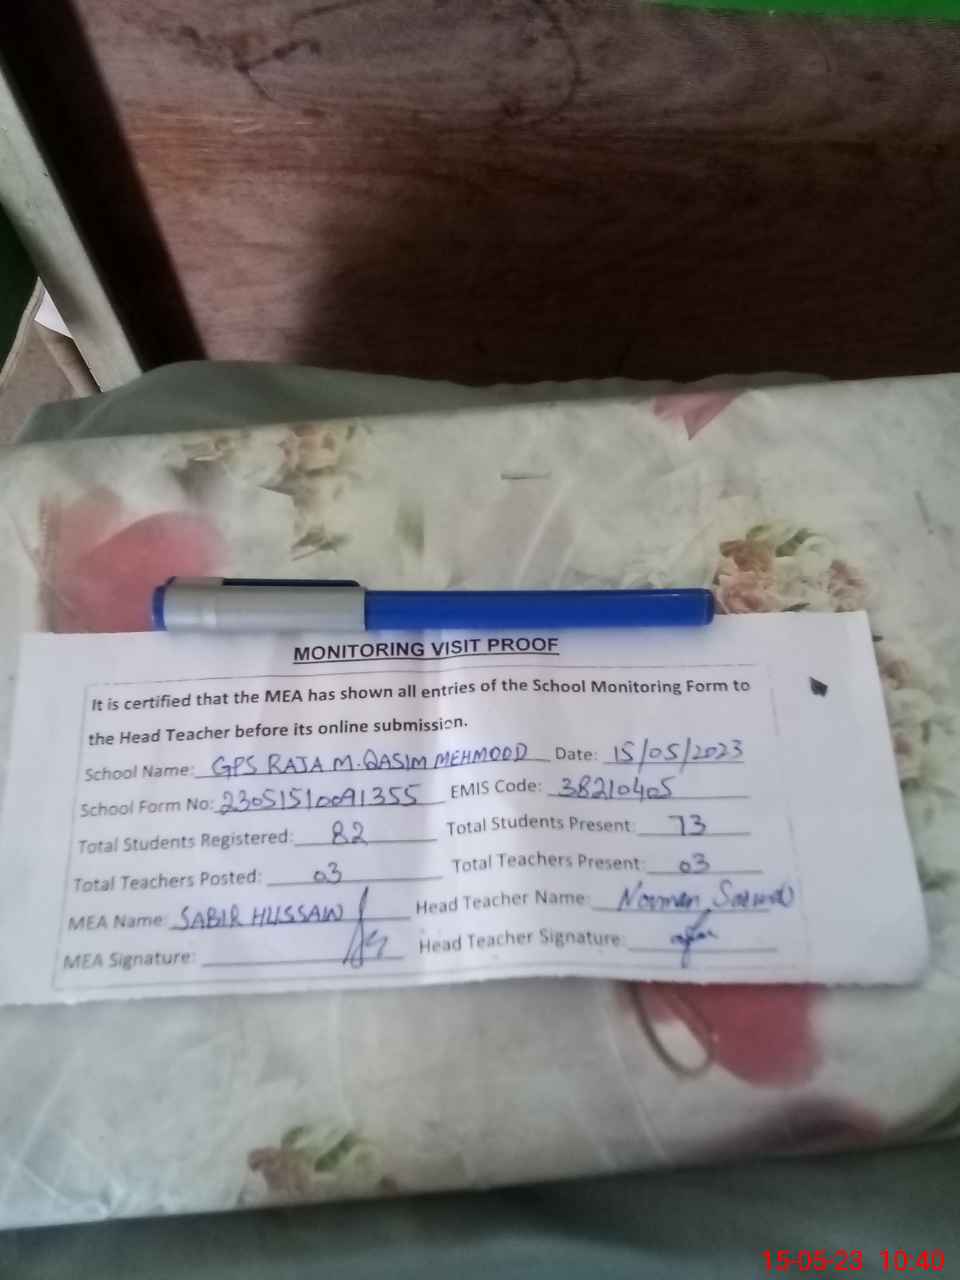 MONITORING VISIT PROOF
It is certified that the MEA has shown all entries of the School Monitoring Form to
the Head Teacher before its online submission.
School Name: GPS RAJA M. QASIM MEHMOOD Date: 15/05/2023
School Form No: 23051510091355 EMIS Code: 38210405
Total Students Registered: 82 Total Students Present: 73
Total Teachers Posted: 03 Total Teachers Present: 03
MEA Name: SABIR HUSSAIN Head Teacher Name:
MEA Signature: Head Teacher Signature:
15-05-23 10:40